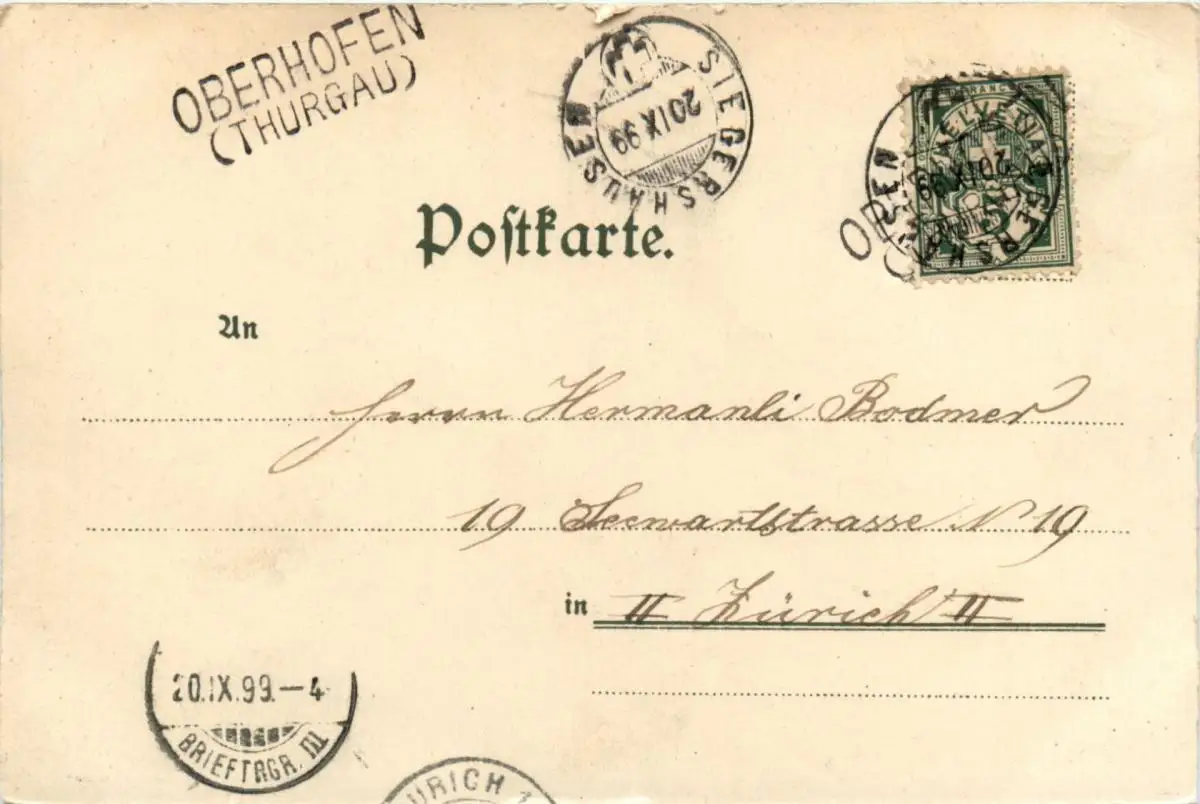 OBERHOFEN
(THURGAU)
SIEGERSHAUSEN
20 IX 99
FRANCO
HELVETIA
SIEGERSHAUSEN
20 IX 99
Poſtkarte.
An
Herrn Hermanli Bodmer
19 Seewartstrasse N 19
in II Zürich II
20.IX.99.–4
BRIEFTRGR. III
ZÜRICH 1